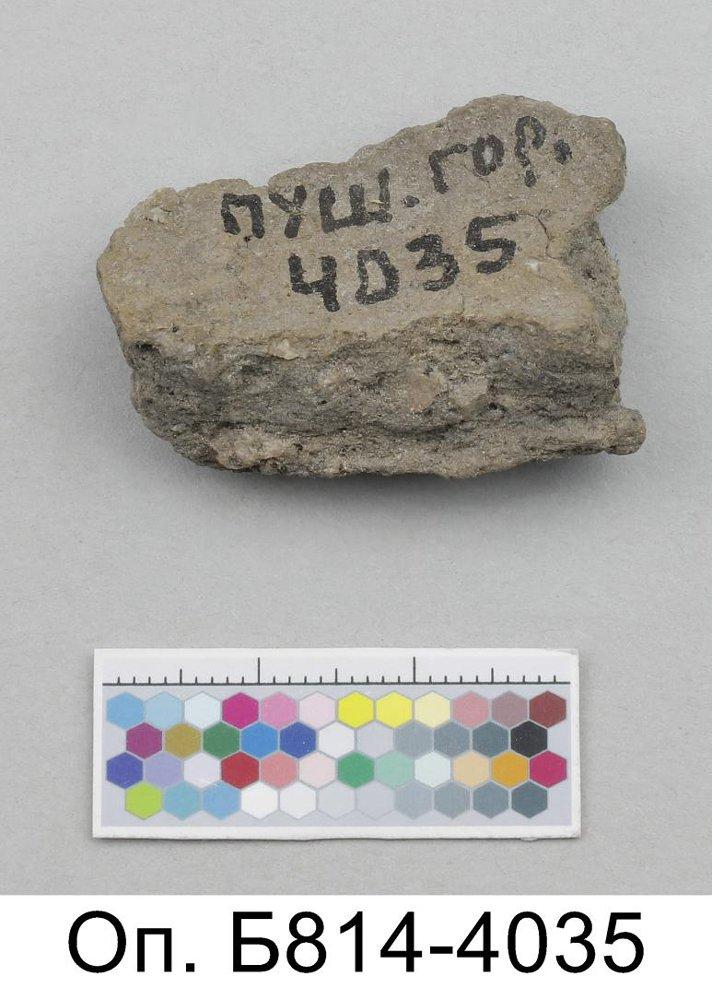 ПУШ. ГОР.
4035
Оп. Б814-4035